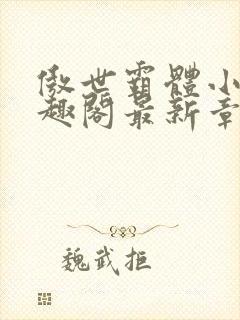 傲世霸體小
趣閣最新章
魏武拒